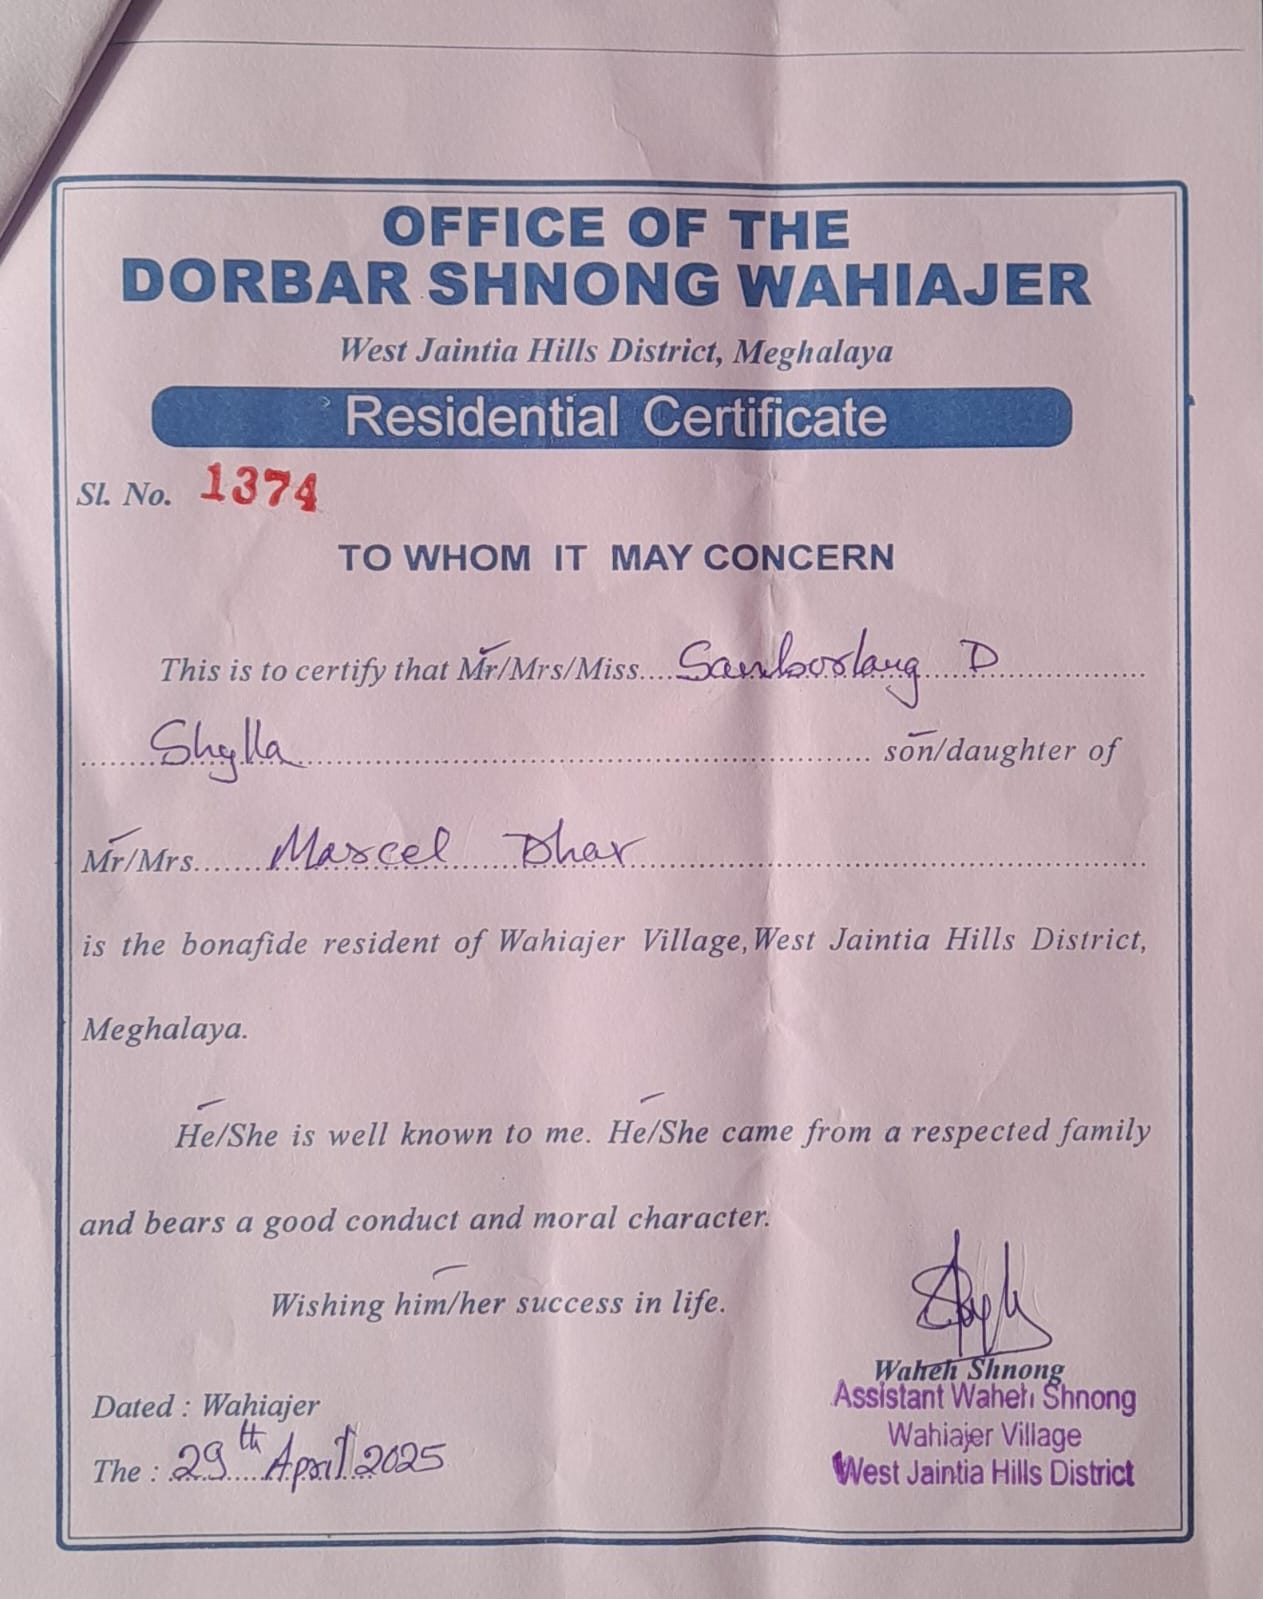 OFFICE OF THE
DORBAR SHNONG WAHIAJER
West Jaintia Hills District, Meghalaya
Residential Certificate
Sl. No. 1374
TO WHOM IT MAY CONCERN
This is to certify that Mr/Mrs/Miss....Samborlang D
Shylla son/daughter of
Mr/Mrs.......Marcel Dhar
is the bonafide resident of Wahiajer Village, West Jaintia Hills District,
Meghalaya.
He/She is well known to me. He/She came from a respected family
and bears a good conduct and moral character.
Wishing him/her success in life.
Waheh Shnong
Assistant Waheh Shnong
Dated : Wahiajer
Wahiajer Village
The : 29th April 2025
West Jaintia Hills District